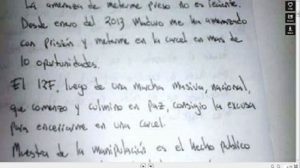 La amenaza de meterme preso no es reciente.
Desde enero del 2013 Maduro me ha amenazado
con prisión y meterme en la carcel en mas de
10 oportunidades.
El 12F, luego de una marcha masiva, nacional,
que comenzo y culmino en Paz, consiguio la excusa
para encerrarme en una carcel.
Muestra de la manipulación es el hecho publico